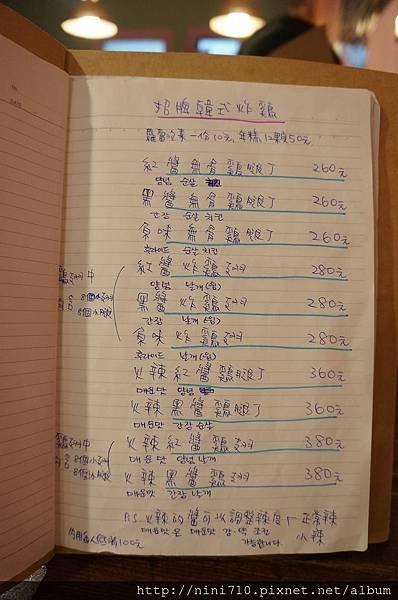 招牌韓式炸雞
蘿蔔冷素一份10元, 年糕12顆50元
紅醬無骨雞腿丁 260元
양념 순살
黑醬無骨雞腿丁 260元
간장 순살 치킨
原味無骨雞腿丁 260元
후라이드 순살 치킨
紅醬炸雞翅 280元
양념 날개(윙)
黑醬炸雞翅 280元
간장 날개(윙)
原味炸雞翅 280元
후라이드 날개(윙)
火辣紅醬雞腿丁 360元
매운맛 양념
火辣黑醬雞腿丁 360元
매운맛 간장 순살
火辣紅醬雞翅 380元
매운맛 양념 날개
火辣黑醬雞翅 380元
매운맛 간장 날개
P.S 火辣的醬可以調整辣度 正常辣
小辣
매운맛은 매운맛 강·약 조절
가능합니다.
100元
http://nini710.pixnet.net/album